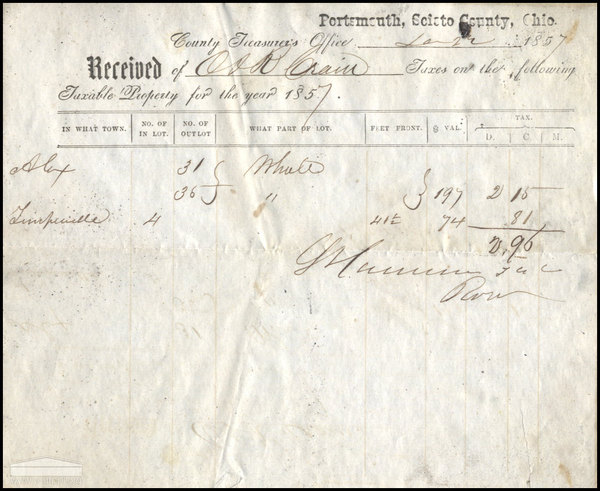 Portsmouth, Scioto County, Ohio.
County Treasurer's Office 1857
Received of O A R Crain Taxes on the following
Taxable Property for the year 1857.
IN WHAT TOWN. NO. OF IN LOT. NO. OF OUTLOT WHAT PART OF LOT. FEET FRONT. $ VAL. TAX. D. C. M.
Alex 31 Whole
36 " 197 2 15
4 74 81
2.96